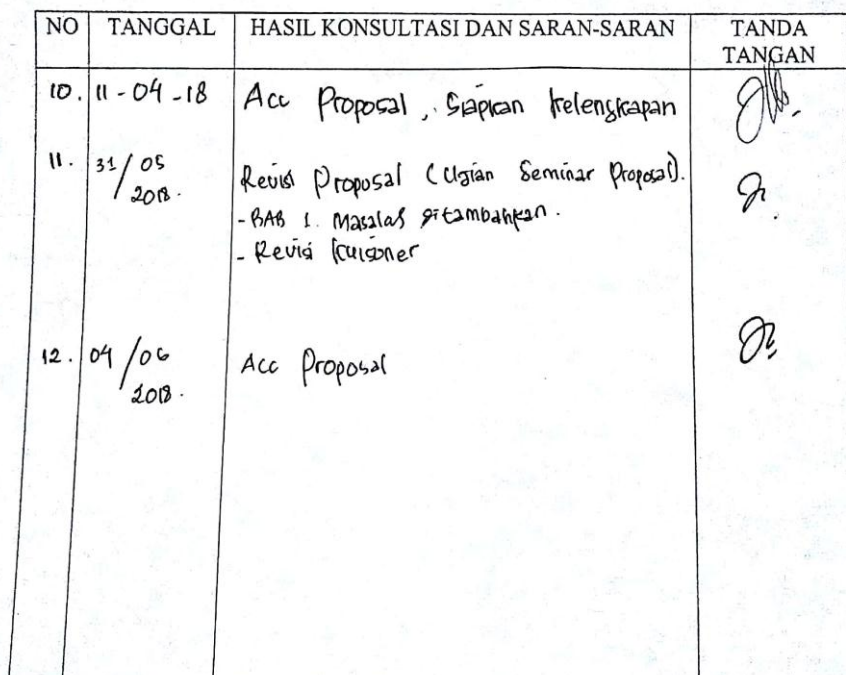 NO TANGGAL HASIL KONSULTASI DAN SARAN-SARAN TANDA TANGAN
10. 11-04-18 Acc Proposal, Siapkan kelengkapan
11. 31/05 2018. Revisi Proposal (Ujian Seminar Proposal).
- BAB 1. Masalah ditambahkan.
- Revisi kuisoner
12. 04/06 2018. Acc Proposal